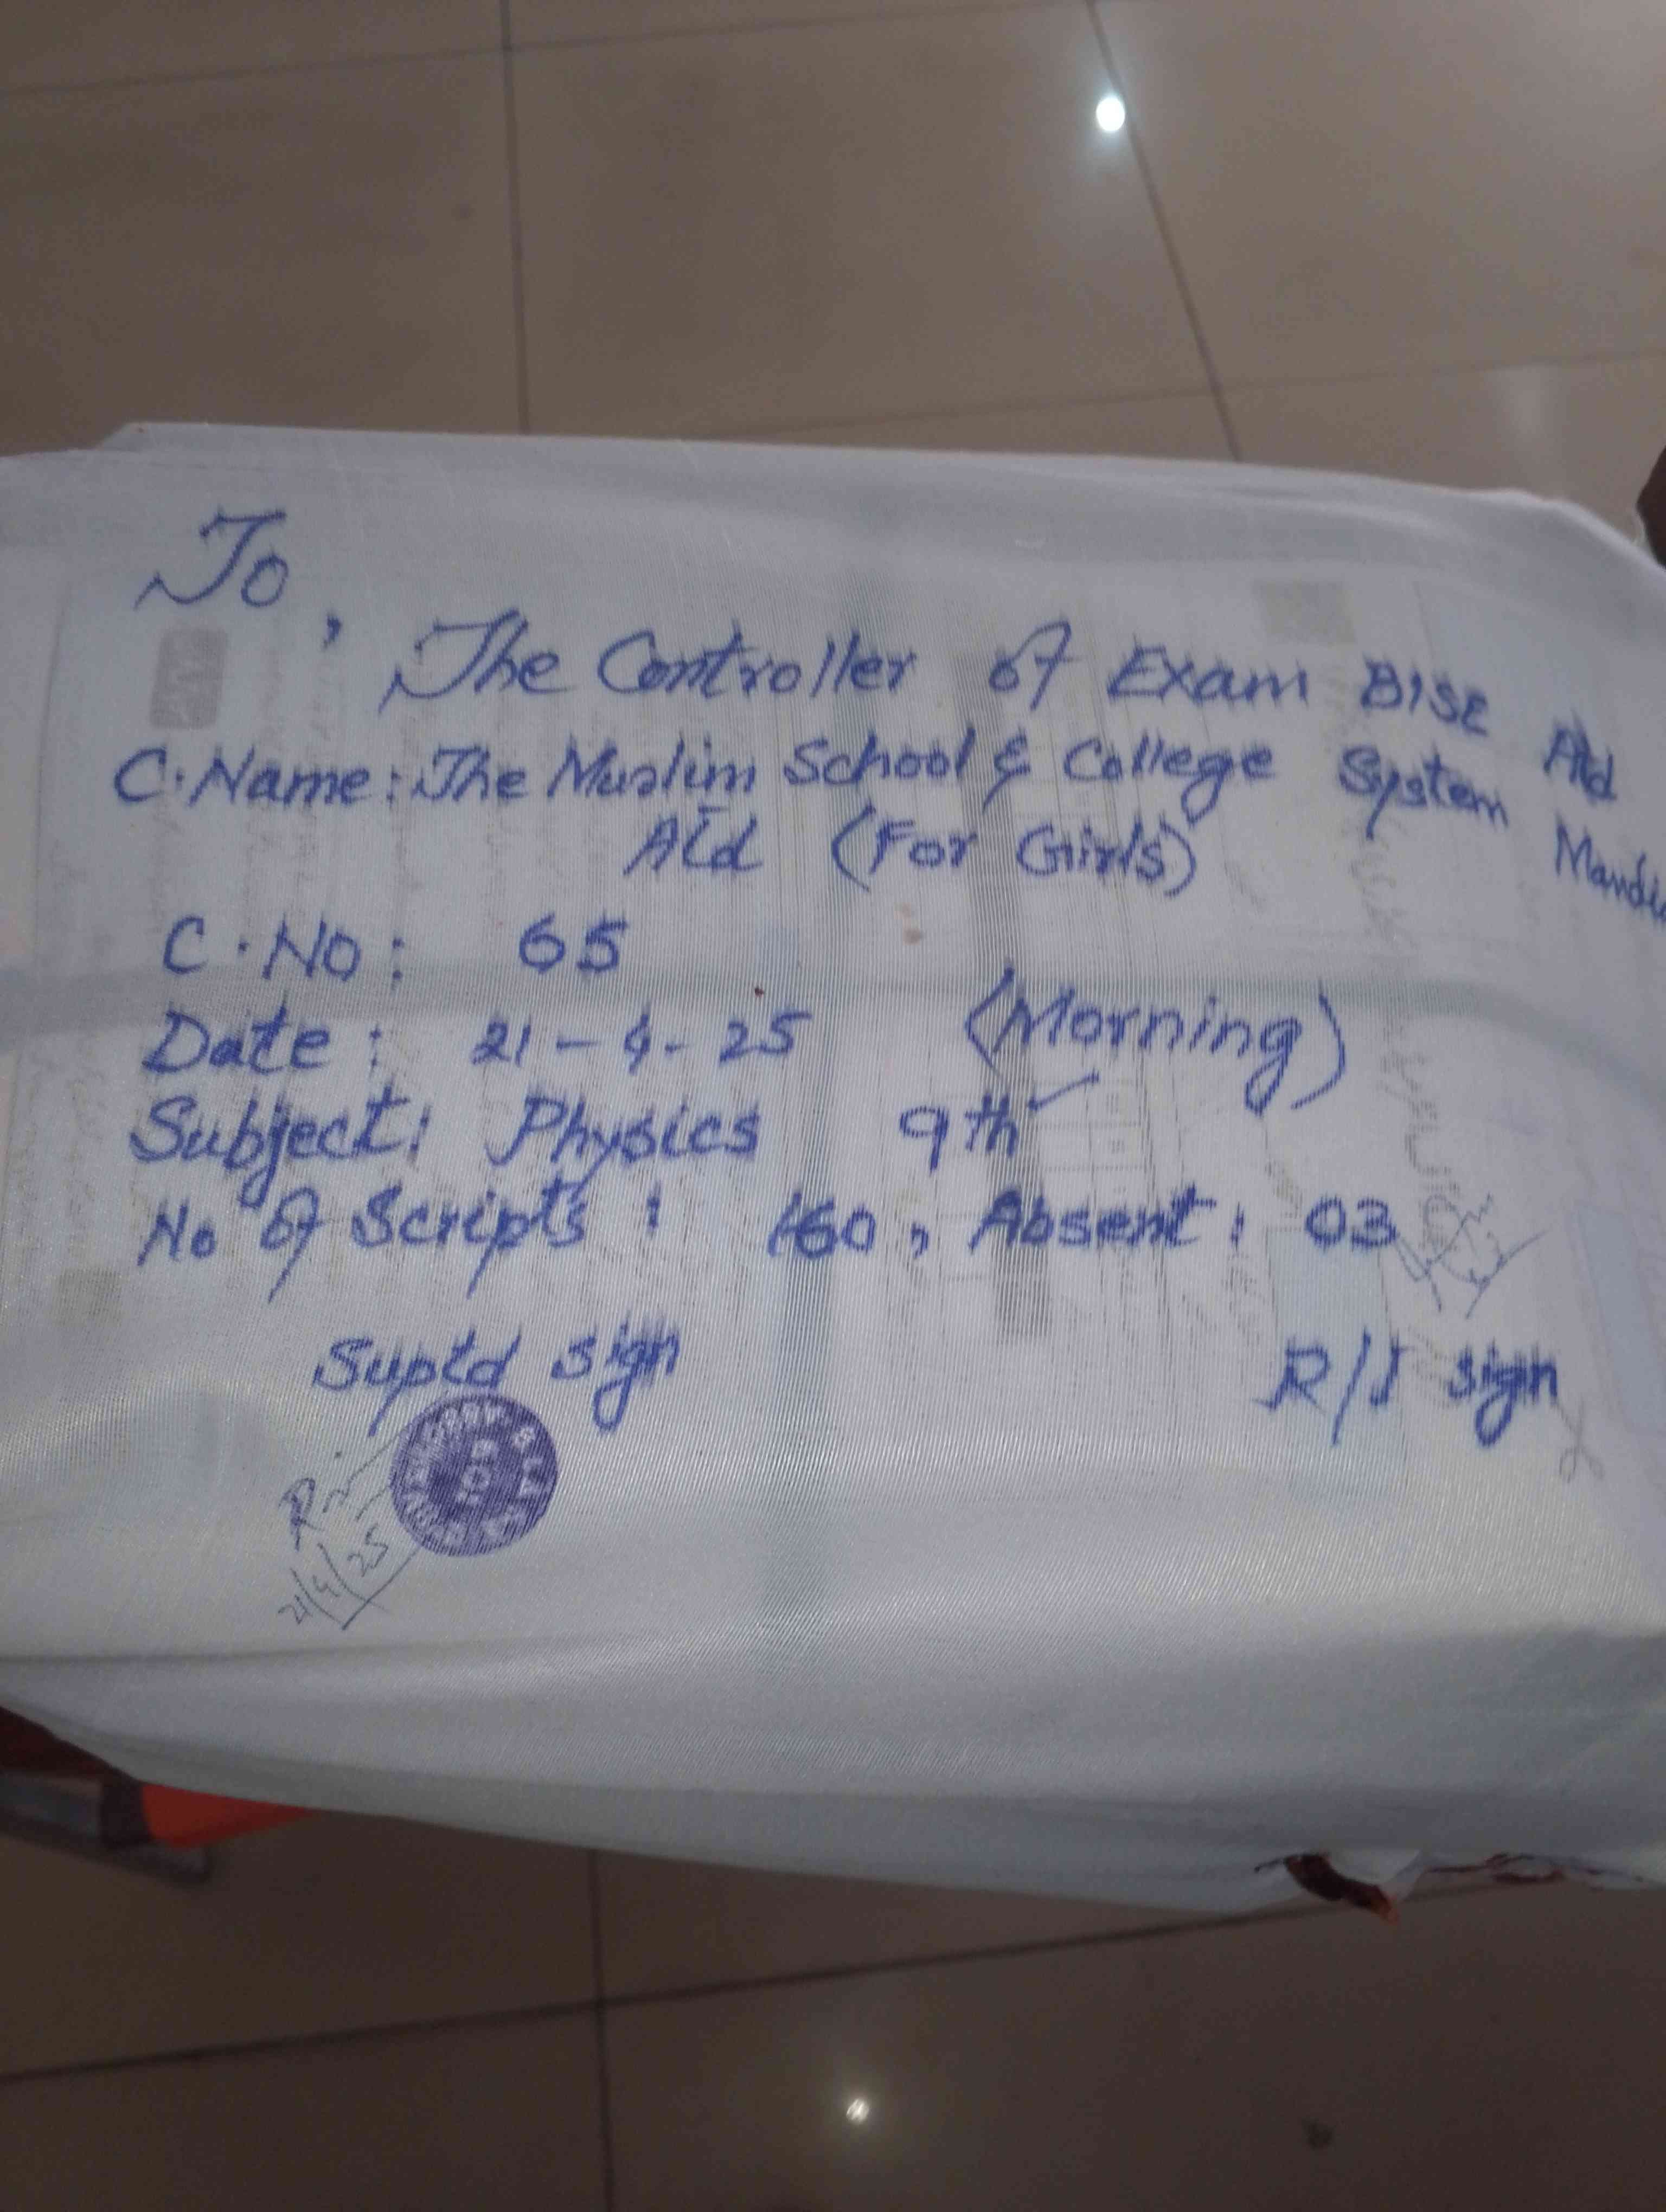 To,
The Controller of Exam BISE Atd
C.Name: The Muslim School & College System Mandia
Atd (For Girls)
C.No: 65
Date: 21-4-25 (Morning)
Subject: Physics 9th
No of Scripts: 160, Absent: 03
Suptd sign R/I sign
21/4/25